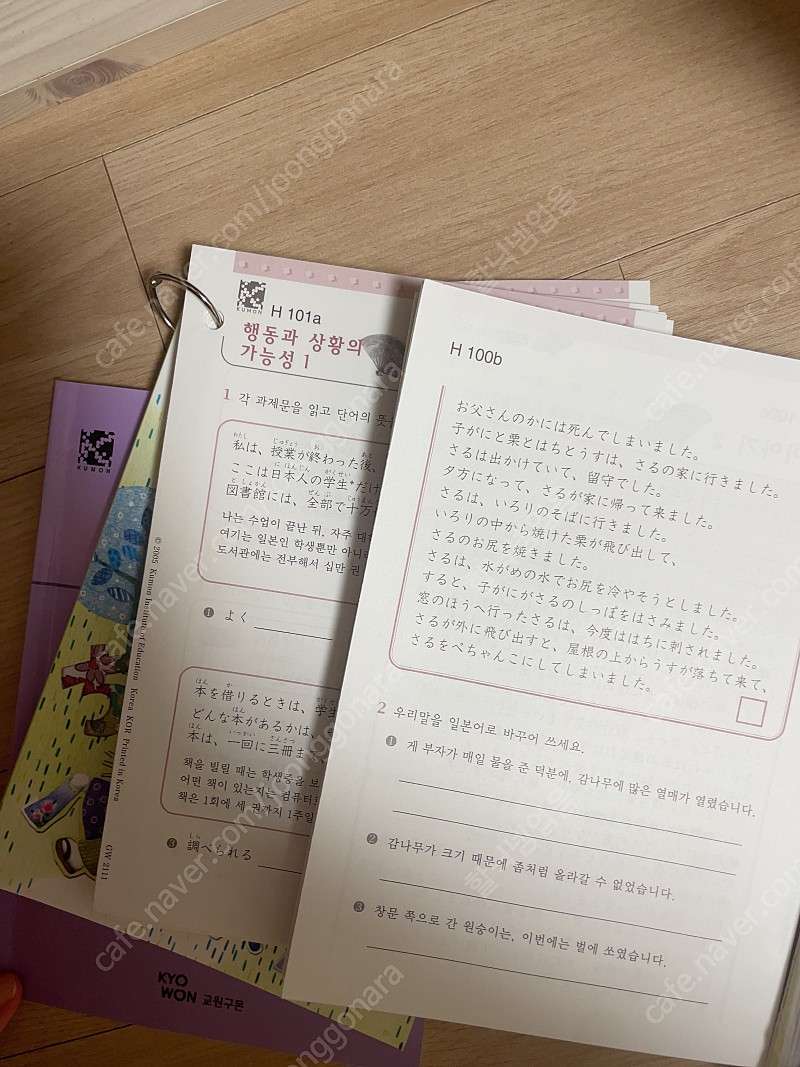 KUMON
H 101a
행동과 상황의
가능성 1
1 각 과제문을 읽고 단어의 뜻
わたし じゅぎょう お あと
私は、授業が終わった後、
に ほんじん がくせい
ここは日本人の学生*だけ
としょかん ぜんぶ じゅうまん
図書館には、全部で十万
나는 수업이 끝난 뒤, 자주 대
여기는 일본인 학생뿐만 아니라
도서관에는 전부해서 십만 권
❶ よく
ほん か がくせい
本を借りるときは、学生
どんな本があるかは、
ほん いっかい さんさつ
本は、一回に三冊ま
책을 빌릴 때는 학생증을 보
어떤 책이 있는지는 컴퓨터
책은 1회에 세 권까지 1주일
❸ 調べられる
しら
© 2005 Kumon Institute of Education Korea KOR Printed in Korea
GW 2111
H 100b
お父さんのかには死んでしまいました。
子がにと栗とはちとうすは、さるの家に行きました。
さるは出かけていて、留守でした。
夕方になって、さるが家に帰って来ました。
さるは、いろりのそばに行きました。
いろりの中から焼けた栗が飛び出して、
さるのお尻を焼きました。
さるは、水がめの水でお尻を冷やそうとしました。
すると、子がにがさるのしっぽをはさみました。
窓のほうへ行ったさるは、今度ははちに刺されました。
さるが外に飛び出すと、屋根の上からうすが落ちて来て、
さるをぺちゃんこにしてしまいました。
2 우리말을 일본어로 바꾸어 쓰세요.
❶ 게 부자가 매일 물을 준 덕분에, 감나무에 많은 열매가 열렸습니다.
❷ 감나무가 크기 때문에 좀처럼 올라갈 수 없었습니다.
❸ 창문 쪽으로 간 원숭이는, 이번에는 벌에 쏘였습니다.
KUMON
KYO
WON 교원구몬
cafe.naver.com/joonggonara